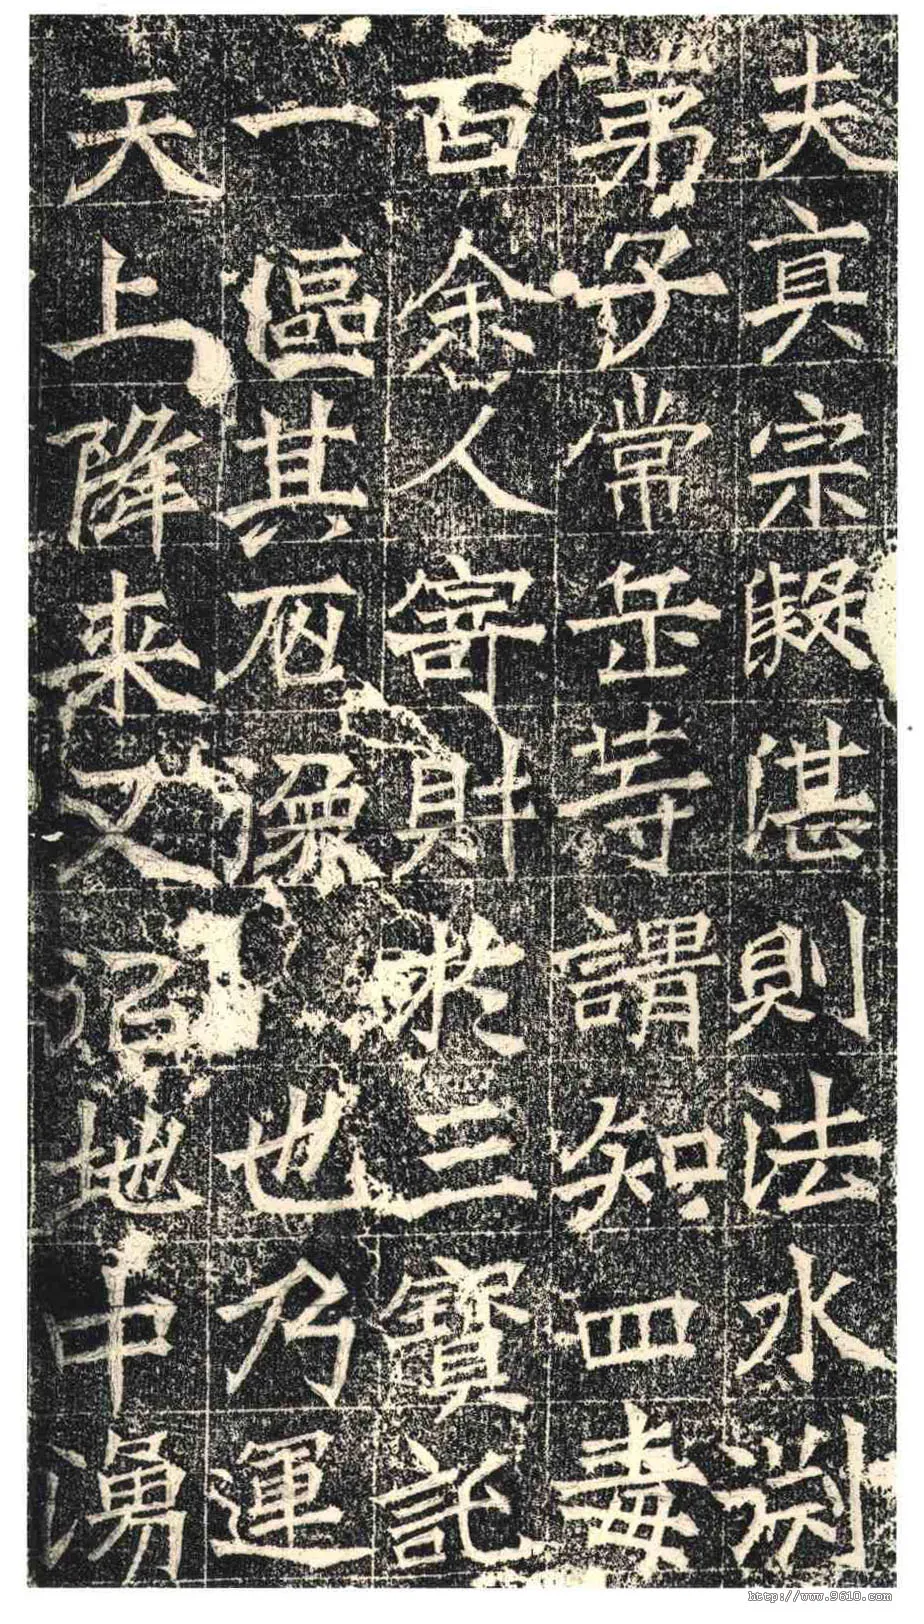 夫真宗疑湛則法水渕
苐子常岳等謂知四毒
百余人寄財於三寶託
一區其像也乃運
天上降来又沼地中湧
http://www.9610.com